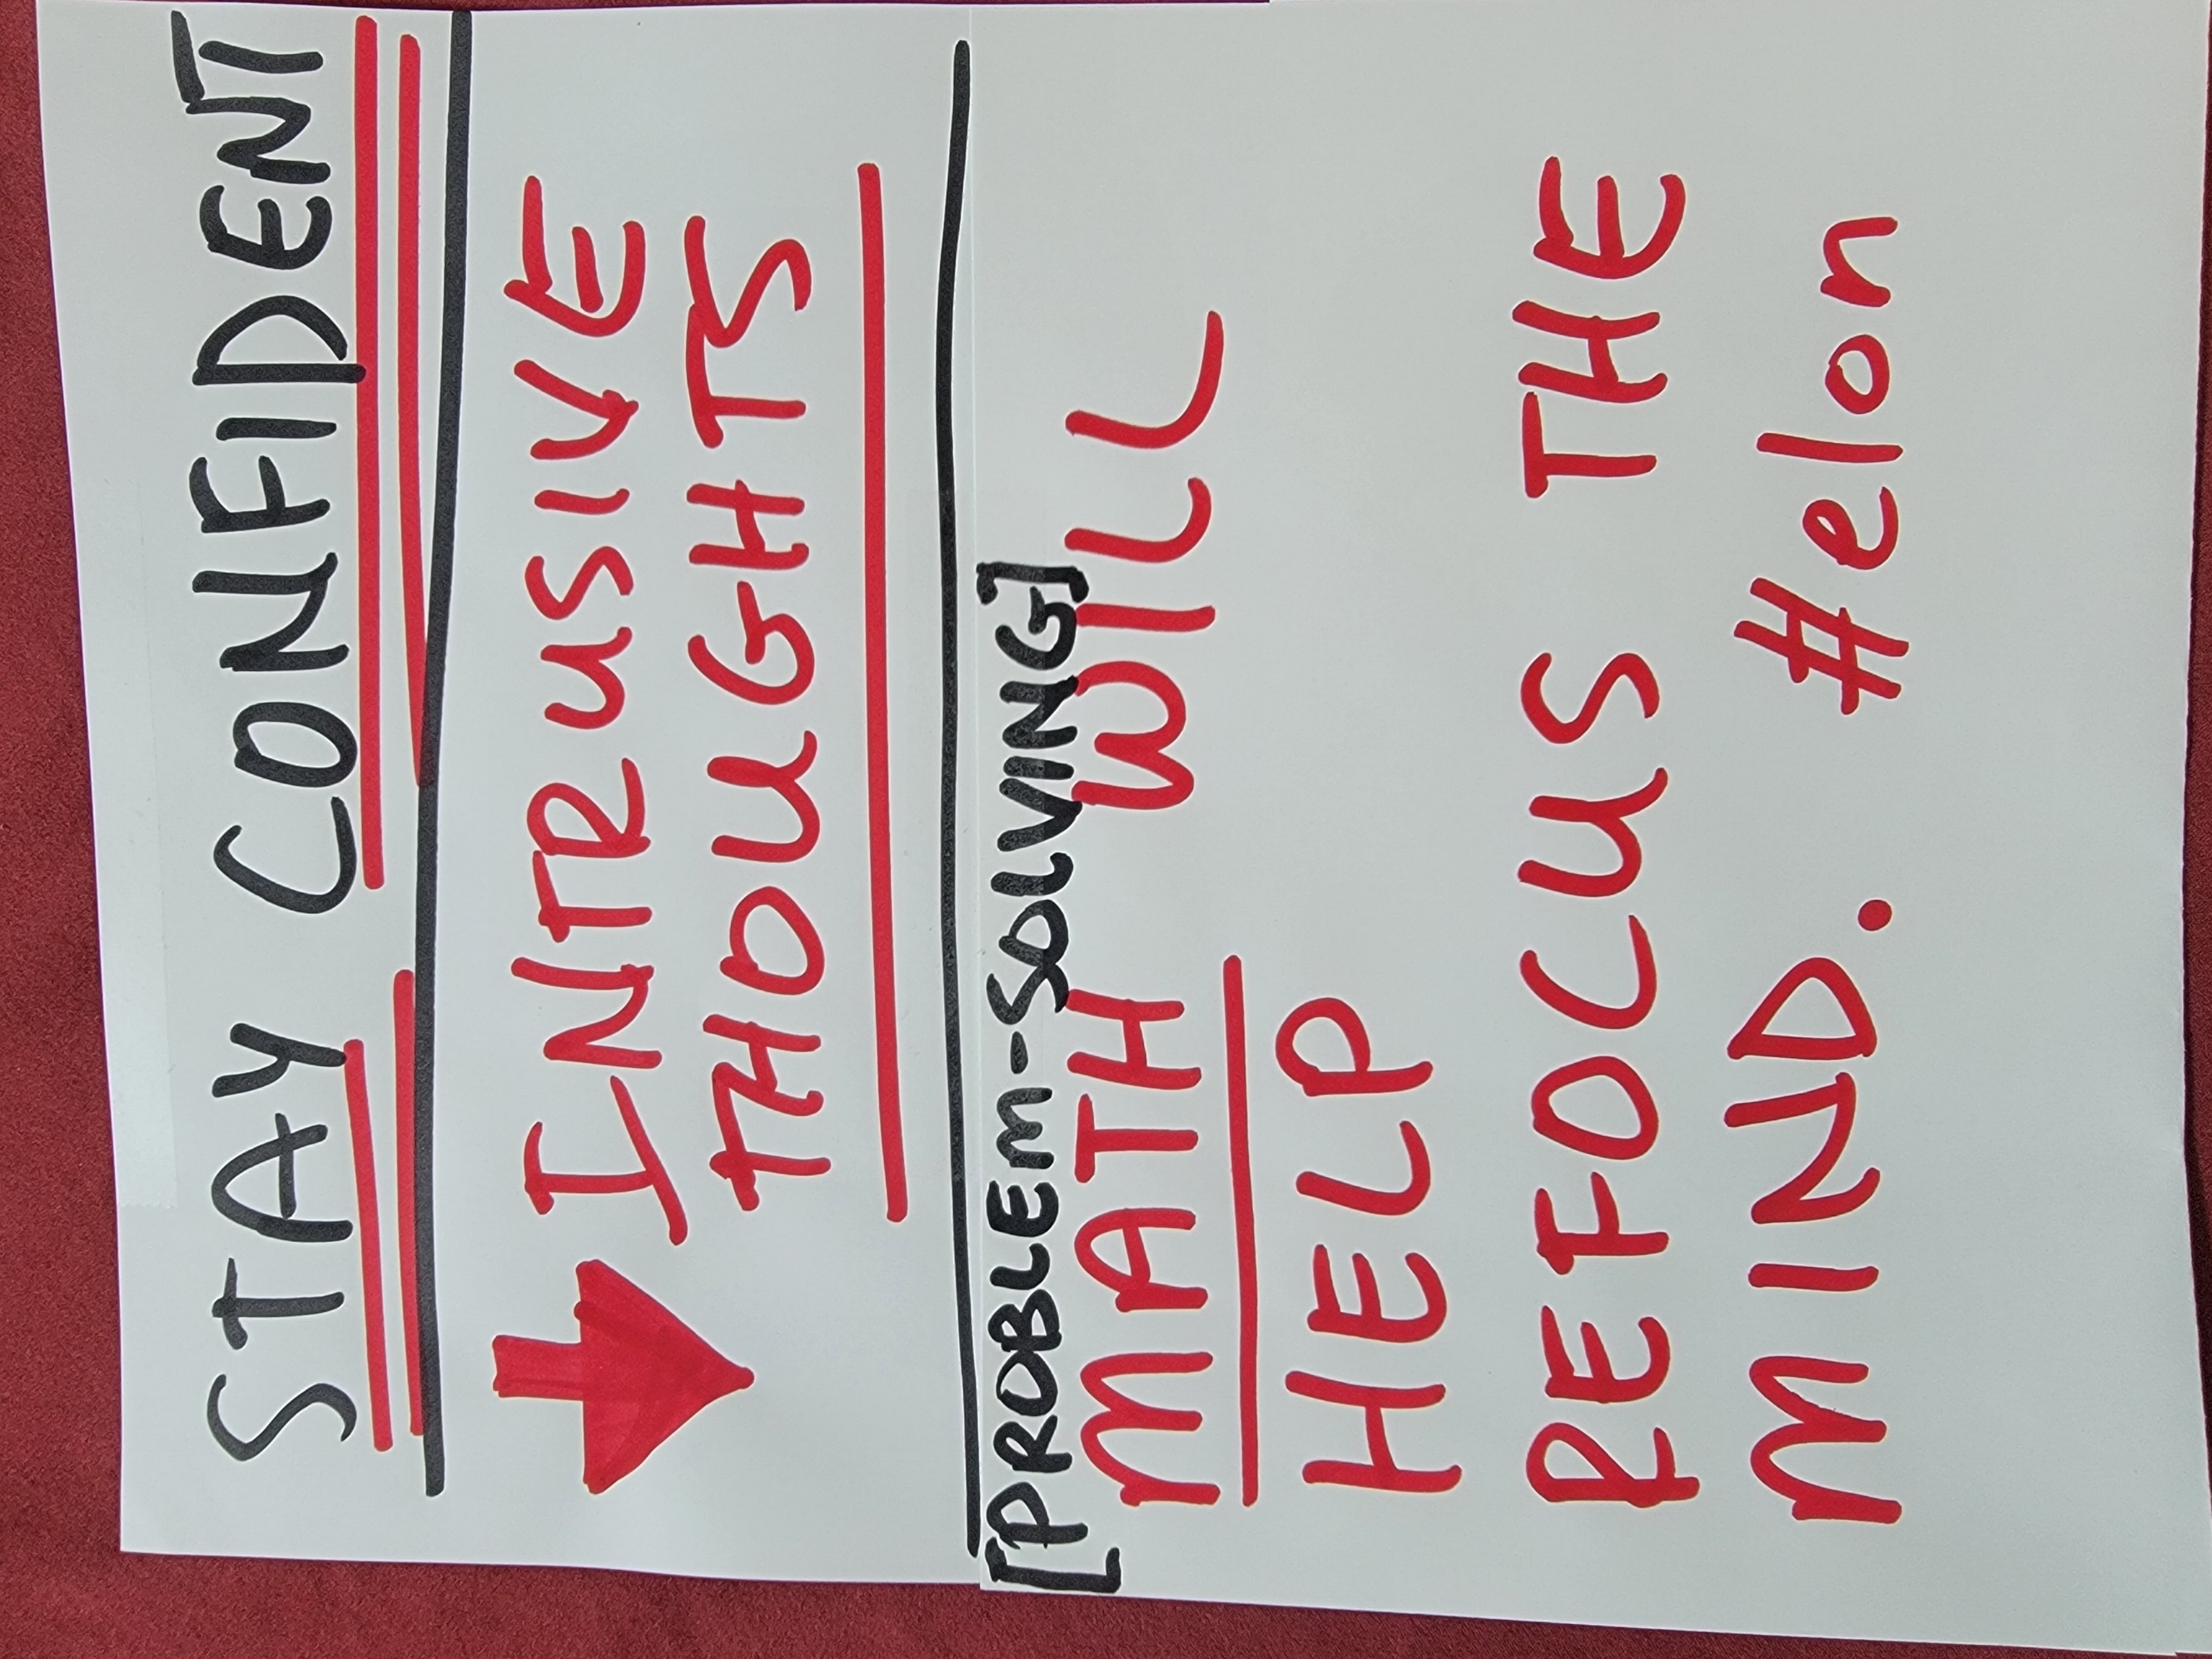 STAY CONFIDENT
INTRUSIVE
THOUGHTS
[PROBLEM-SOLVING]
MATH WILL
HELP
REFOCUS THE
MIND. #elon